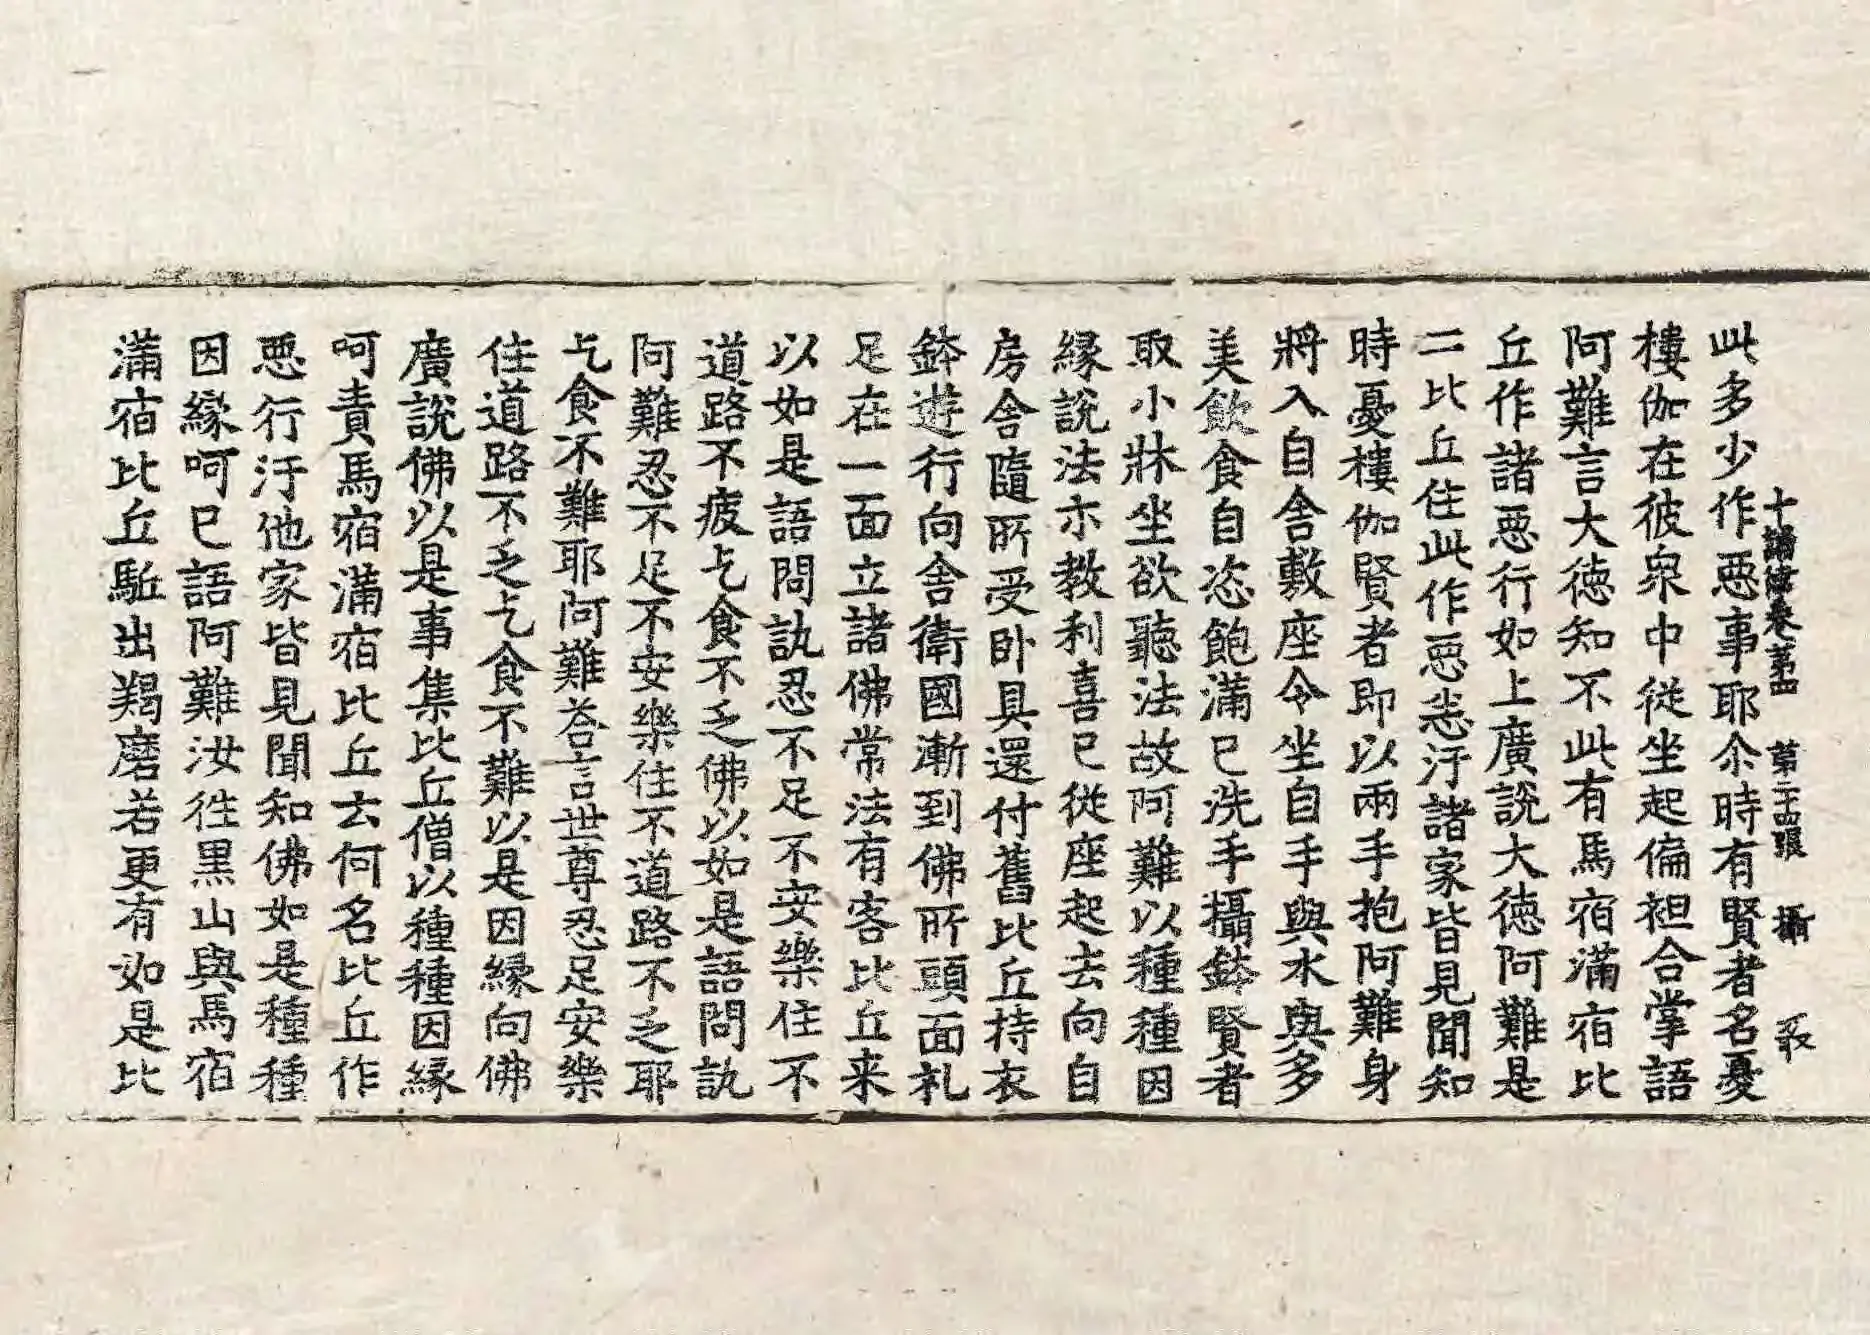 十誦律卷第四 第二十四張 攝
此多少作惡事耶尒時有賢者名憂
樓伽在彼衆中從坐起偏袒合掌語
阿難言大徳知不此有馬宿滿宿比
丘作諸惡行如上廣說大徳阿難是
二比丘住此作惡恙汙諸家皆見聞知
時憂樓伽賢者即以兩手抱阿難身
將入自舍敷座令坐自手與水與多
美飲食自恣飽滿已洗手攝鉢賢者
取小牀坐欲聽法故阿難以種種因
縁說法示教利喜已從座起去向自
房舍隨所受卧具還付舊比丘持衣
鉢遊行向舍衛國漸到佛所頭面礼
足在一面立諸佛常法有客比丘来
以如是語問訊忍不足不安樂住不
道路不疲乞食不乏佛以如是語問訊
阿難忍不足不安樂住不道路不乏耶
乞食不難耶阿難荅言世尊忍足安樂
住道路不乏乞食不難以是因縁向佛
廣說佛以是事集比丘僧以種種因縁
呵責馬宿滿宿比丘云何名比丘作
惡行汙他家皆見聞知佛如是種種
因緣呵已語阿難汝徃黒山與馬宿
滿宿比丘駈出羯磨若更有如是比